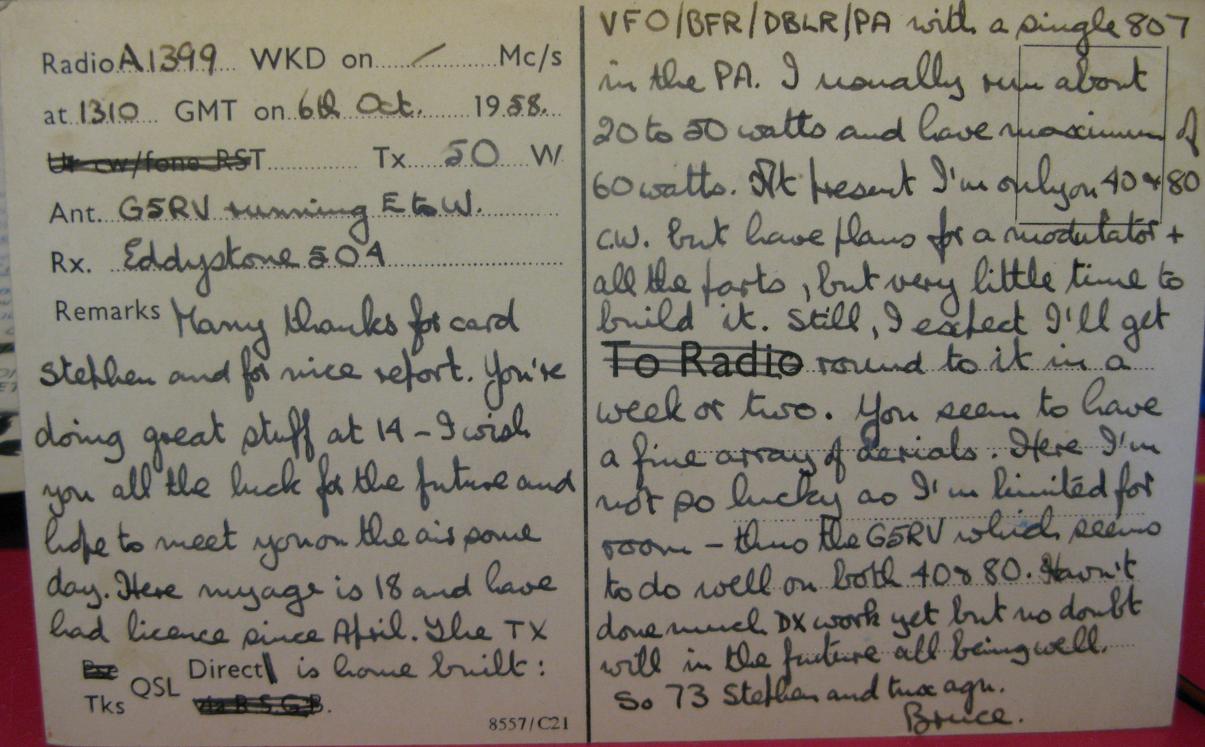 Radio A1399 WKD on / Mc/s
at 1310 GMT on 6th Oct. 1958.
Ur cw/fone RST Tx 50 W
Ant. G5RV running E to W.
Rx. Eddystone 504
Remarks Many thanks for card
Stephen and for nice report. You're
doing great stuff at 14 - I wish
you all the luck for the future and
hope to meet you on the air some
day. Here my age is 18 and have
had licence since April. The TX
Pse QSL Direct is home built:
Tks via R.S.G.B.
8557/C21
VFO/BFR/DBLR/PA with a single 807
in the PA. I usually run about
20 to 50 watts and have maximum of
60 watts. At present I'm only on 40 & 80
c.w. but have plans for a modulator +
all the parts, but very little time to
build it. Still, I expect I'll get
To Radio round to it in a
week or two. You seem to have
a fine array of aerials. Here I'm
not so lucky as I'm limited for
room - thus the G5RV which seems
to do well on both 40 & 80. Havn't
done much DX work yet but no doubt
will in the future all being well.
So 73 Stephen and tnx agn.
Bruce.